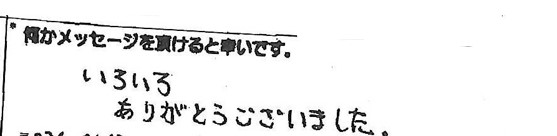 * 何かメッセージを頂けると幸いです。
いろいろ
ありがとうございました。